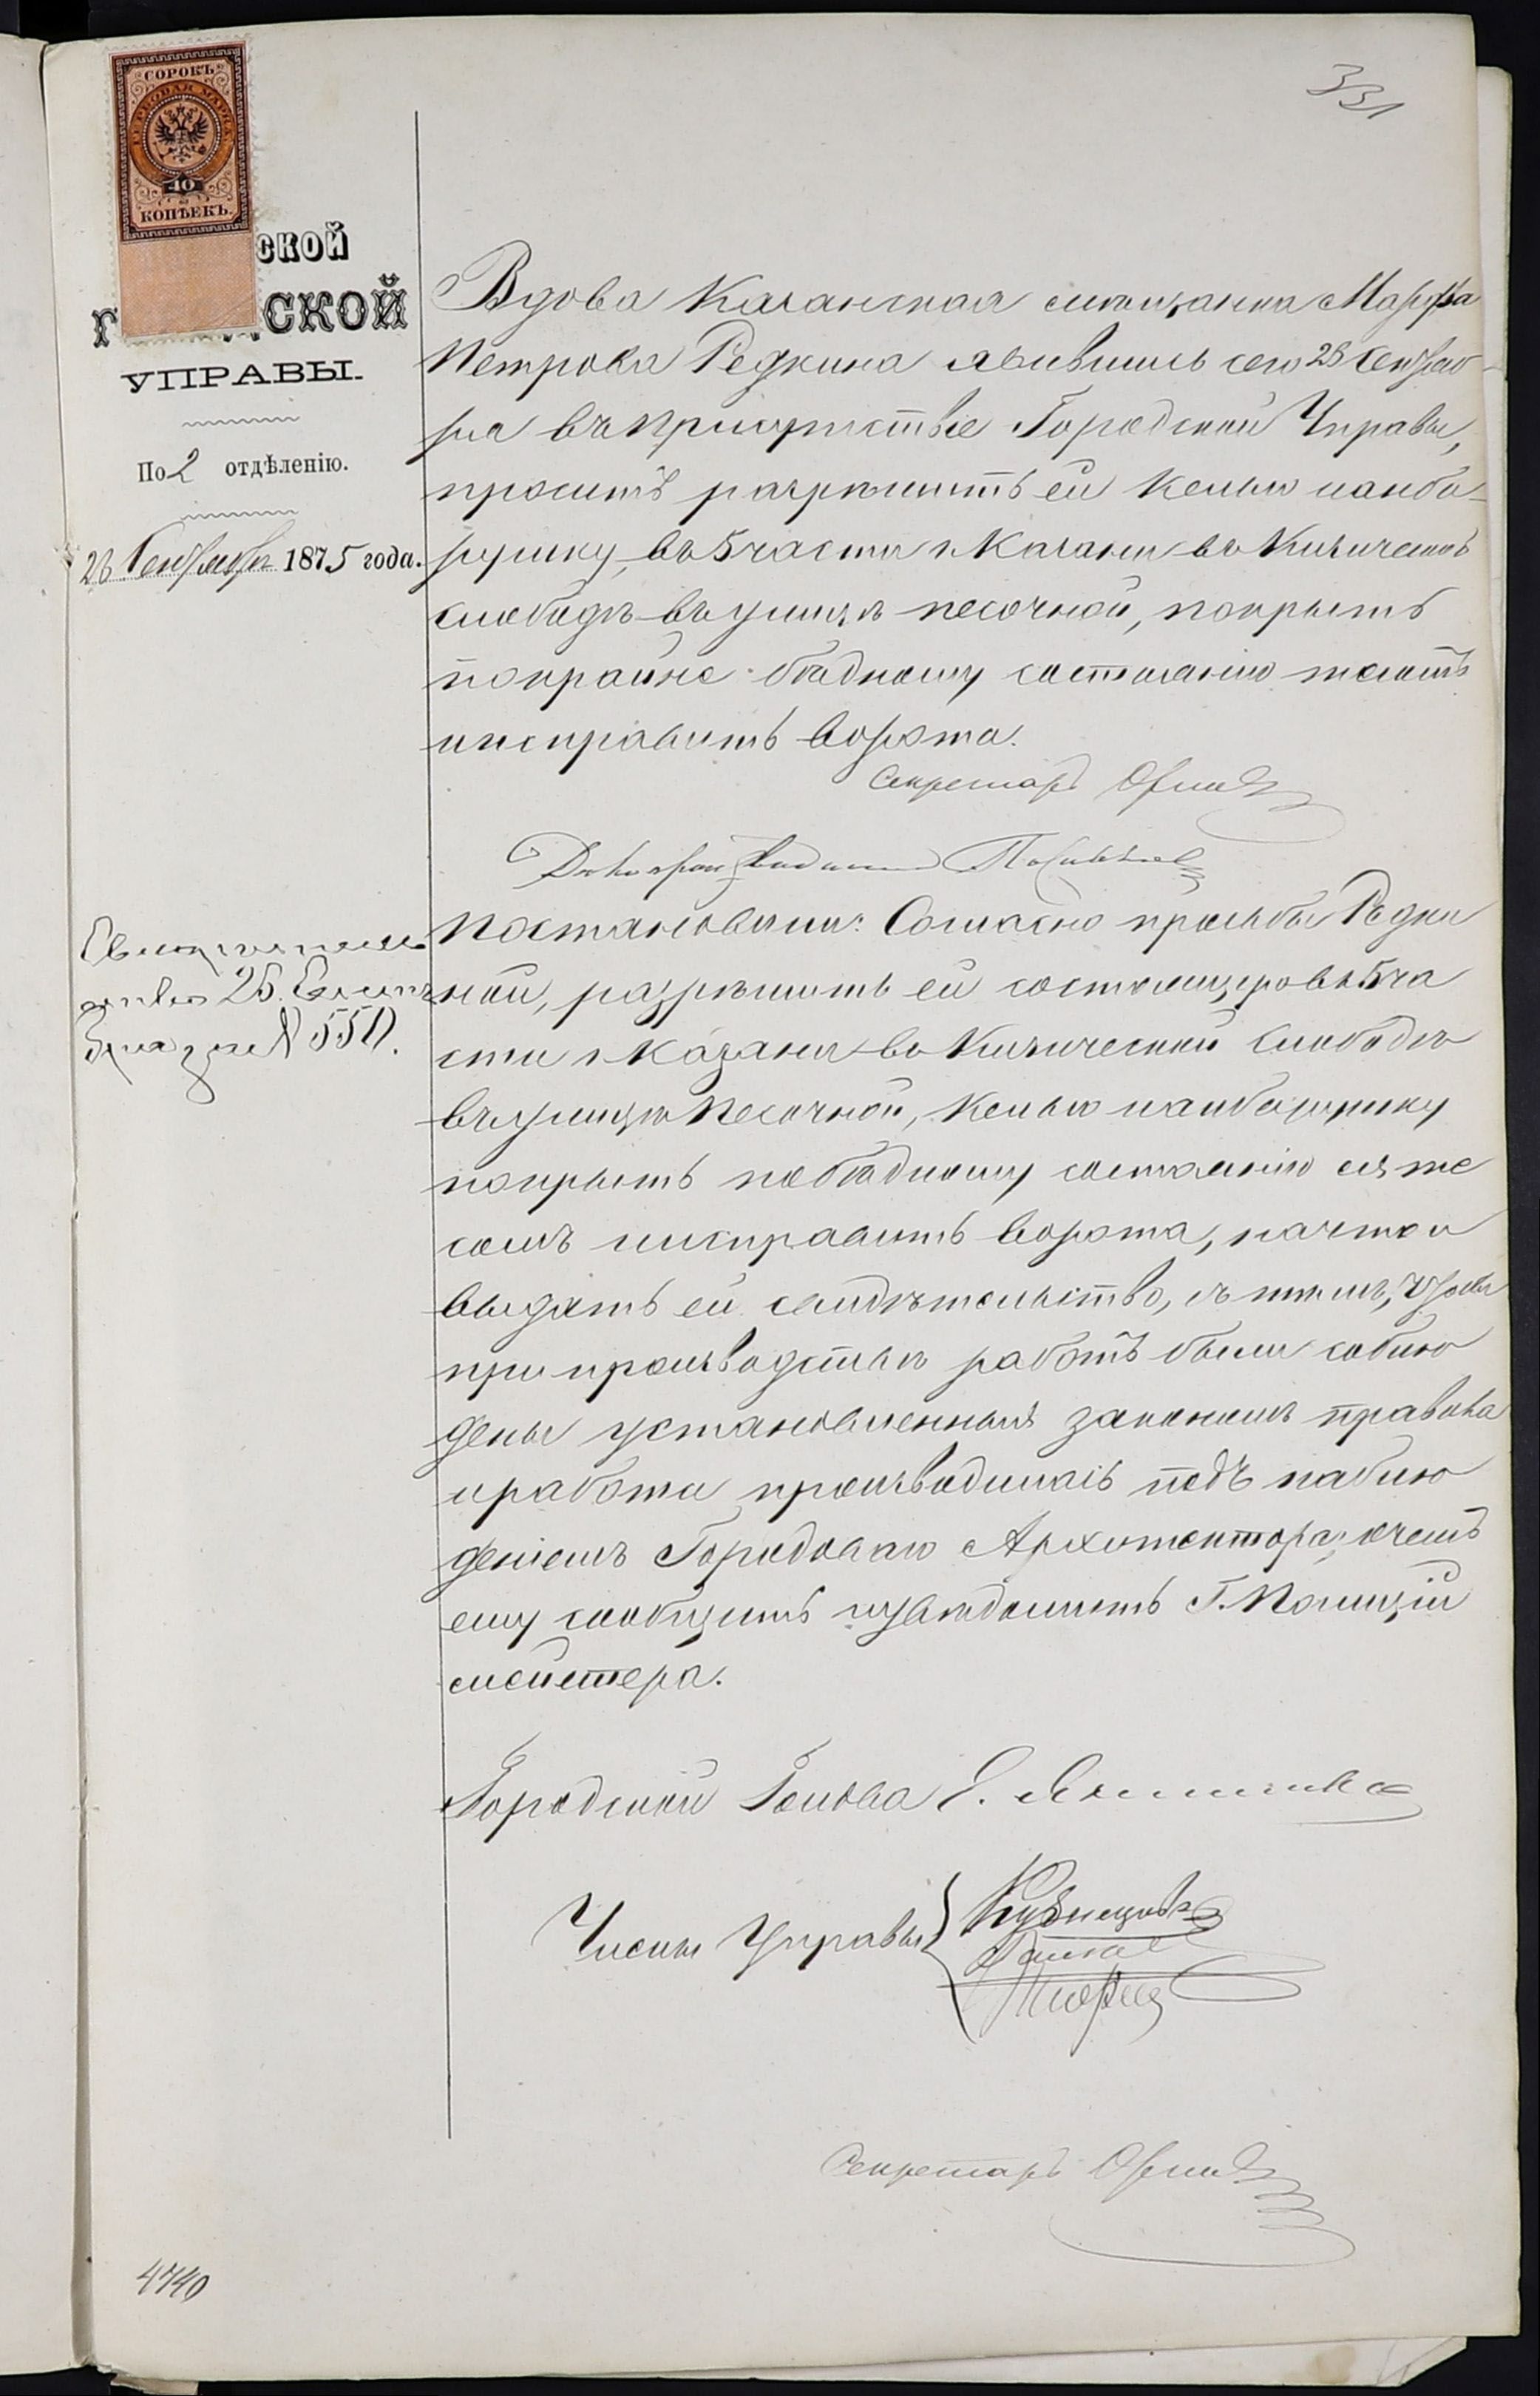 331
СОРОКЪ
ГЕРБОВАЯ МАРКА
40
КОПѢЕКЪ.
ской
Г СКОЙ
УПРАВЫ.
По 2 отдѣленію.
28 Сентября 1875 года.
Вдова Казанская мѣщанка Марфа
Петрова Редкина явившись сего 28 Сентяб-
ря въ присутствіе Городской Управы,
проситъ разрѣшить ей келью
въ 5 части г. Казани въ Кизической
слободѣ въ улицѣ песочной, покрыть
по крайне бѣдному состоянію тесомъ
и исправить ворота.
Секретарь
Дѣлопроизводитель
Постановили: Согласно просьбы Редки
ной, разрѣшить ей состоящую въ 5 ча
сти г. Казани въ Кизической Слободѣ
въ улицѣ Песочной, келью
покрыть по бѣдному состоянію ея те
сомъ и исправить ворота, на что и
выдать ей свидѣтельство, съ тѣмъ, чтобы
при производствѣ работъ были соблю
дены установленныя закономъ правила
и работа производилась подъ наблю
деніемъ Городоваго Архитектора, о чемъ
ему сообщить и увѣдомить Г. Полиціи
мейстера.
25
№ 550.
Городской Голова Е.
Члены Управы
Кузнецовъ
Секретарь
4740